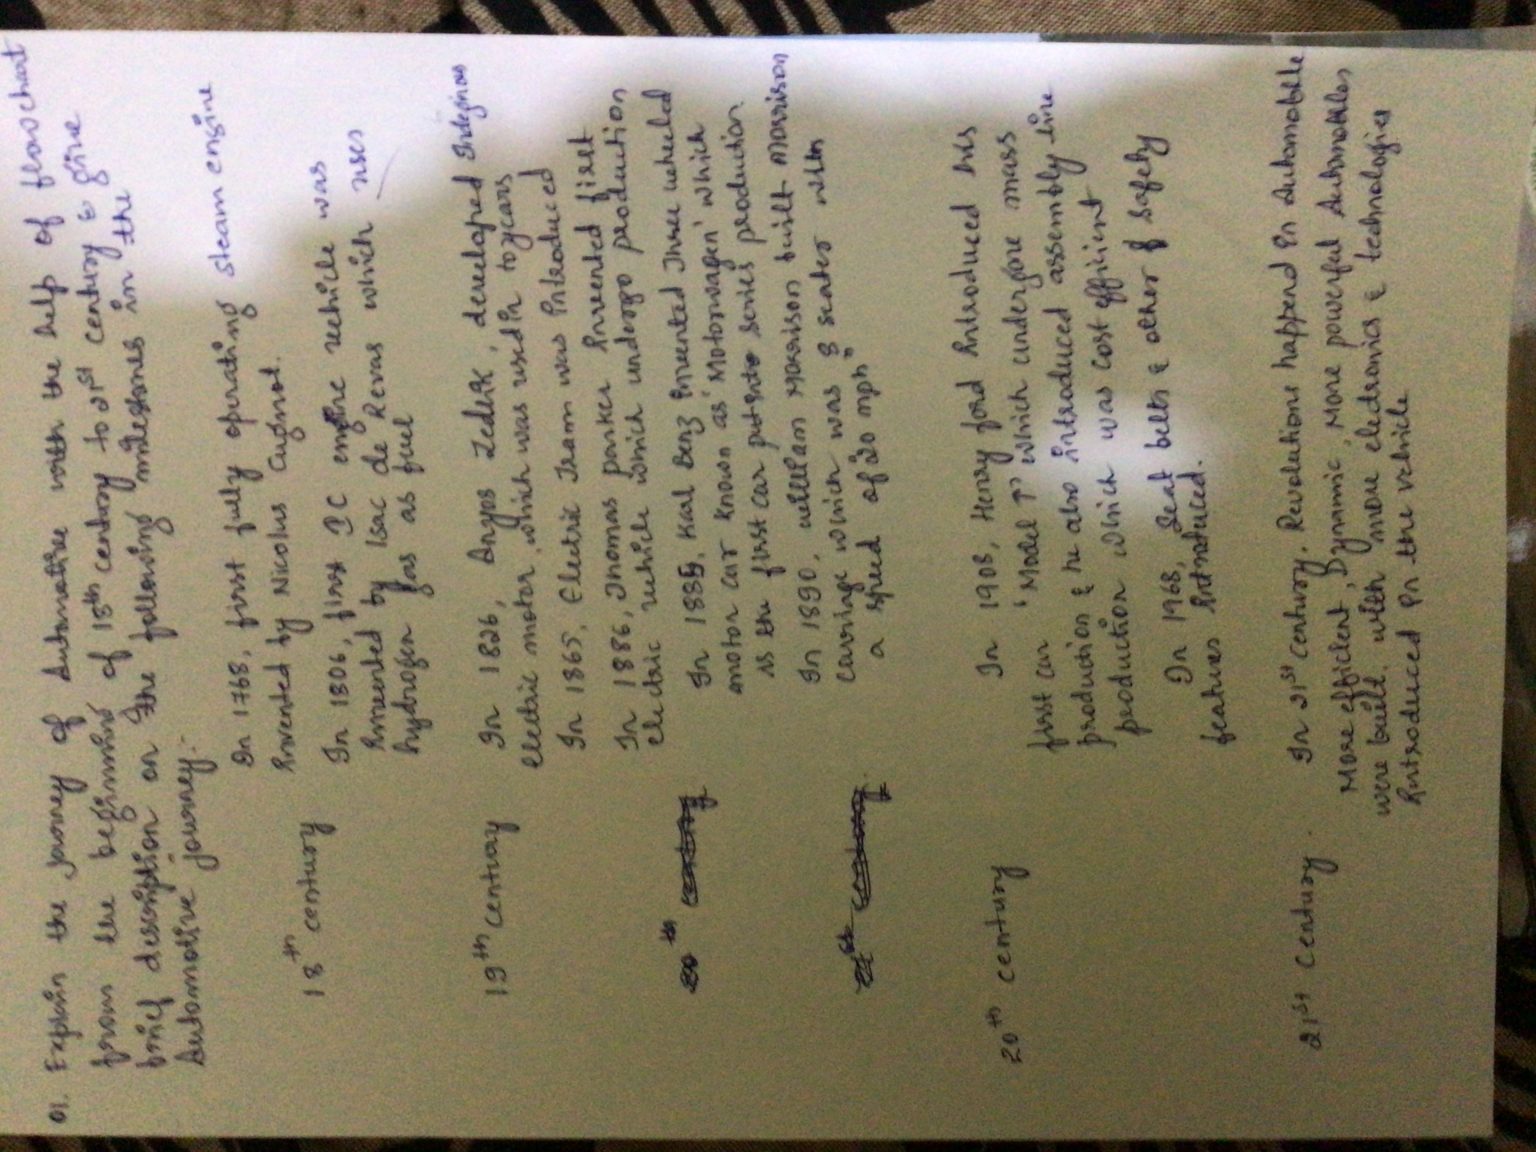 01. Explain the journey of Automotive with the help of flowchart
from the beginning of 18th century to 21st century & give
brief description on the following milestones in the
Automotive journey:-
18th century
In 1768, first fully operating steam engine
invented by Nicolus Cugnot.
In 1806, first IC engine vehicle was
invented by Isac de Revas which uses
hydrogen gas as fuel
19th century
In 1826, Anyos Jedik, developed Indegious
electric motor, which was used in toycars
In 1865, Electric Tram was introduced
In 1886, Thomas parker invented first
electric vehicle which undergo production
20th century
In 1885, Karl Benz invented Three wheeled
motor car known as 'Motorwagen' which
is the first car put into series production
21st century
In 1890, william Morrison built Morrison
carriage which was 8 seater with
a speed of 20 mph"
20th century
In 1908, Henry ford introduced his
first car 'Model T' which undergore mass
production & he also introduced assembly line
production which was cost efficient
In 1968, Seat belts & other & safety
features introduced.
21st century.
In 21st century, Revolutions happend in Automobile
More efficient, Dynamic, More powerful Automobiles
were built. with more electronics & technologies
introduced in the vehicle